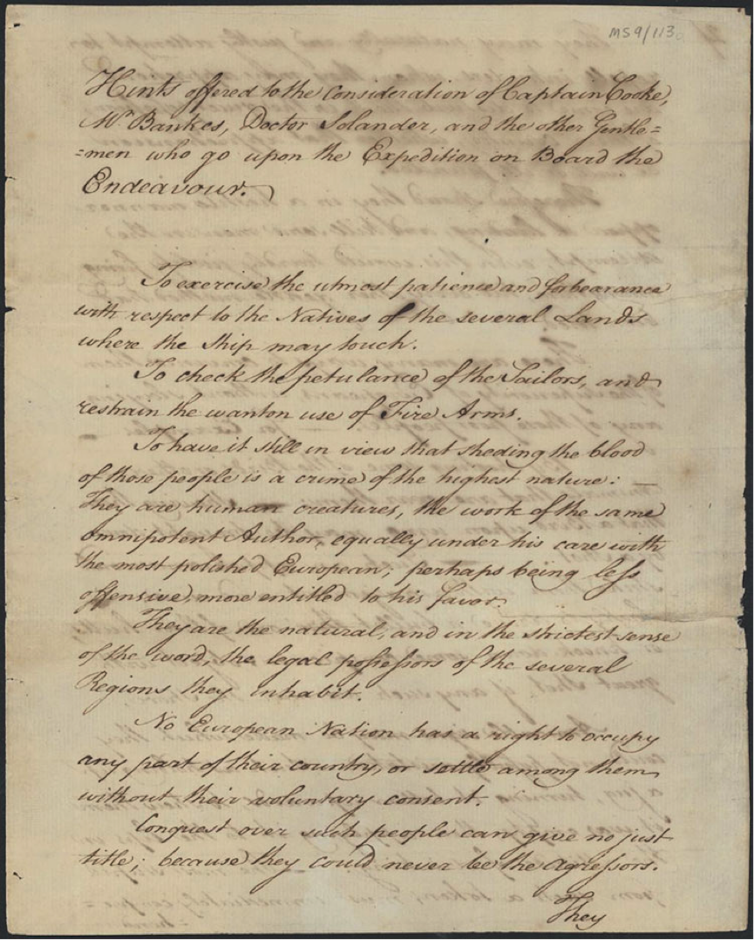 MS 9/113
Hints offered to the consideration of Captain Cooke,
Mr Bankes, Doctor Solander, and the other Gentle=
=men who go upon the Expedition on Board the
Endeavour.
To exercise the utmost patience and forbearance
with respect to the Natives of the several Lands
where the Ship may touch.
To check the petulance of the Sailors, and
restrain the wanton use of Fire Arms.
To have it still in view that sheding the blood
of those people is a crime of the highest nature: —
They are human creatures, the work of the same
omnipotent Author, equally under his care with
the most polished European; perhaps being less
offensive, more entitled to his favor.
They are the natural, and in the strictest sense
of the word, the legal possessors of the several
Regions they inhabit.
No European Nation has a right to occupy
any part of their country, or settle among them
without their voluntary consent.
Conquest over such people can give no just
title; because they could never be the Agressors.
They